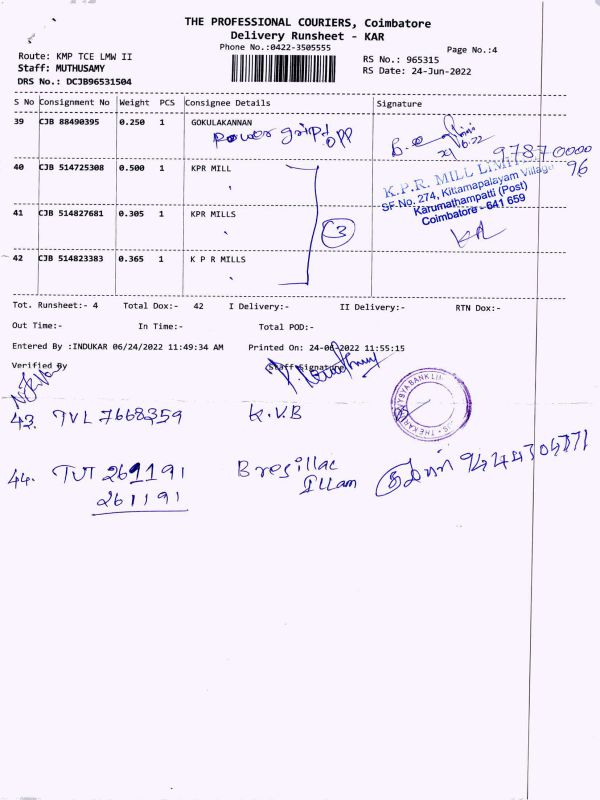 THE PROFESSIONAL COURIERS, Coimbatore
Delivery Runsheet - KAR
Phone No.:0422-3505555
Page No.:4
Route: KMP TCE LMW II
RS No.: 965315
Staff: MUTHUSAMY
RS Date: 24-Jun-2022
DRS No.: DCJB96531504
S No Consignment No Weight PCS Consignee Details Signature
39 CJB 88490395 0.250 1 GOKULAKANNAN
Power grip opp
97870000
96
40 CJB 514725308 0.500 1 KPR MILL
K.P.R. MILL LIMITED
SF No. 274, Kittampalayam Village
Karumathampatti (Post)
Coimbatore - 641 659
41 CJB 514827681 0.305 1 KPR MILLS
3
42 CJB 514823383 0.365 1 K P R MILLS
Tot. Runsheet:- 4 Total Dox:- 42 I Delivery:- II Delivery:- RTN Dox:-
Out Time:- In Time:- Total POD:-
Entered By :INDUKAR 06/24/2022 11:49:34 AM Printed On: 24-06-2022 11:55:15
Verified By Staff Signature
43. TVL 7668359 K.V.B
44. TUT 261191 Bresillac
261191 Illam